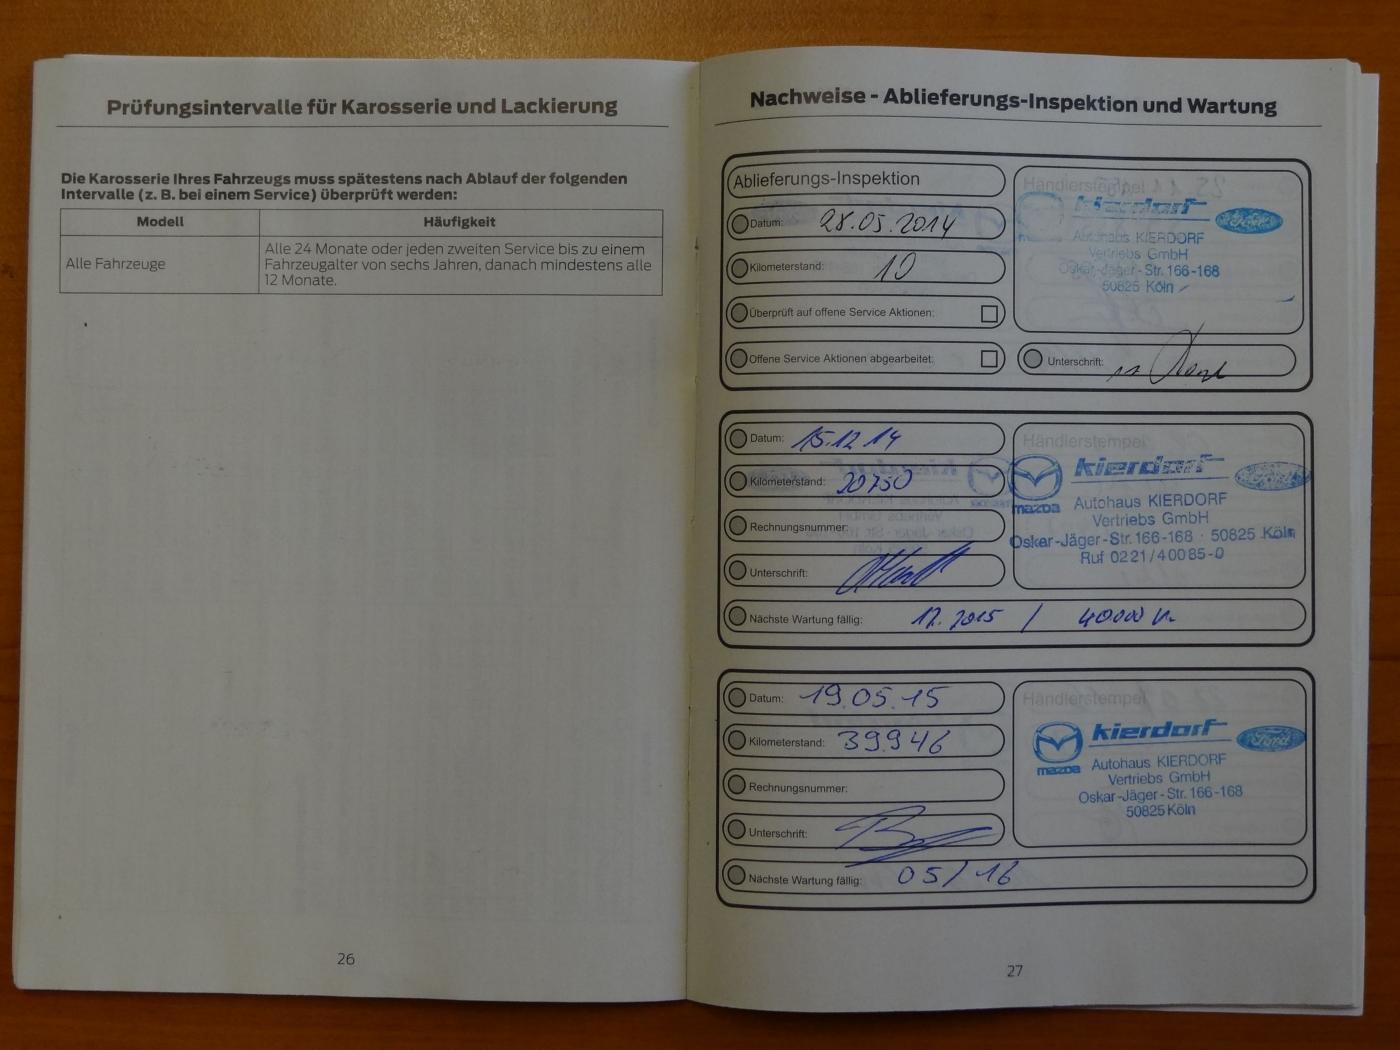 Prüfungsintervalle für Karosserie und Lackierung
Die Karosserie Ihres Fahrzeugs muss spätestens nach Ablauf der folgenden
Intervalle (z. B. bei einem Service) überprüft werden:
Modell Häufigkeit
Alle Fahrzeuge
Alle 24 Monate oder jeden zweiten Service bis zu einem
Fahrzeugalter von sechs Jahren, danach mindestens alle
12 Monate.
26
Nachweise - Ablieferungs-Inspektion und Wartung
Ablieferungs-Inspektion
Datum: 28.05.2014
Kilometerstand: 10
Überprüft auf offene Service Aktionen:
Offene Service Aktionen abgearbeitet:
Händlerstempel
kierdorf Ford
Autohaus KIERDORF
Vertriebs GmbH
Oskar-Jäger-Str. 166-168
50825 Köln
Unterschrift:
Datum: 15.12.14
Kilometerstand: 20750
Rechnungsnummer:
Unterschrift:
Nächste Wartung fällig: 12.2015 / 40000
Händlerstempel
mazda kierdorf Ford
Autohaus KIERDORF
Vertriebs GmbH
Oskar-Jäger-Str. 166-168 · 50825 Köln
Ruf 0221/40085-0
Datum: 19.05.15
Kilometerstand: 39946
Rechnungsnummer:
Unterschrift:
Nächste Wartung fällig: 05/16
Händlerstempel
mazda kierdorf Ford
Autohaus KIERDORF
Vertriebs GmbH
Oskar-Jäger-Str. 166-168
50825 Köln
27